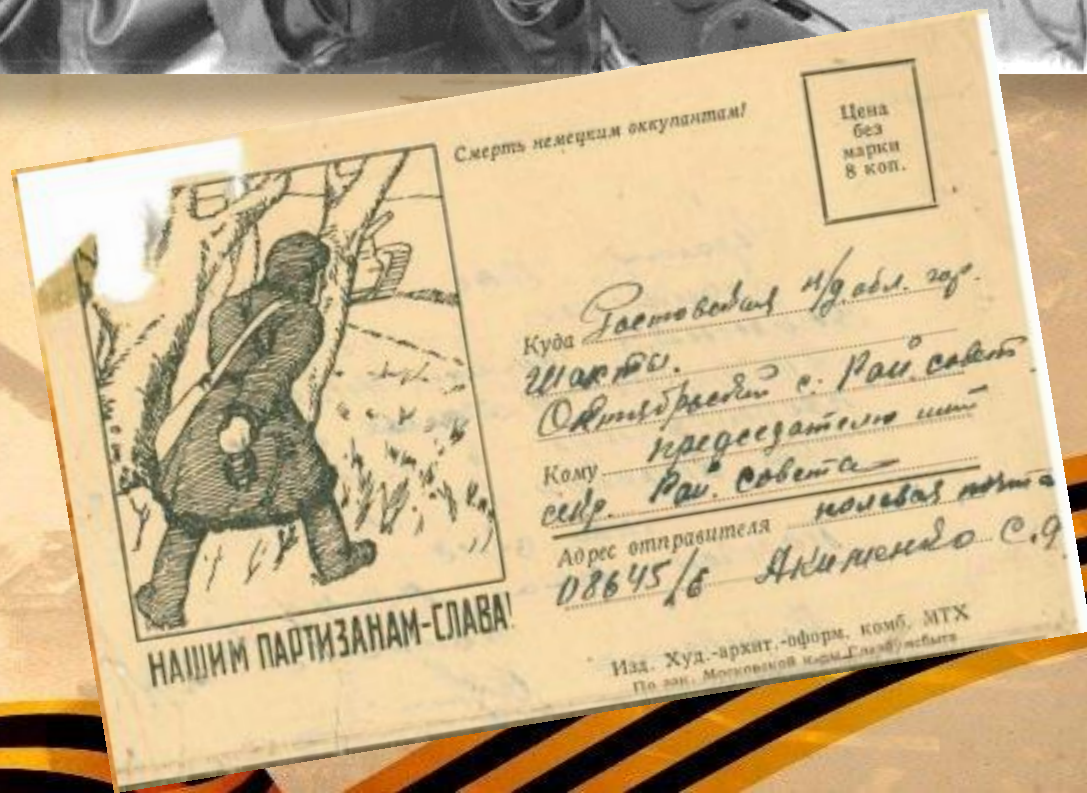 Смерть немецким оккупантам!
Цена
без
марки
8 коп.
Куда Ростовская н/д обл. гор.
Шахты.
Октябрьский с. Рай. совет
Кому председателю или
секр. Рай. совета
Адрес отправителя полевая почта
08645/б Якименко С.Я
НАШИМ ПАРТИЗАНАМ-СЛАВА!
Изд. Худ.-архит.-оформ. комб. МТХ
По зак. Московской